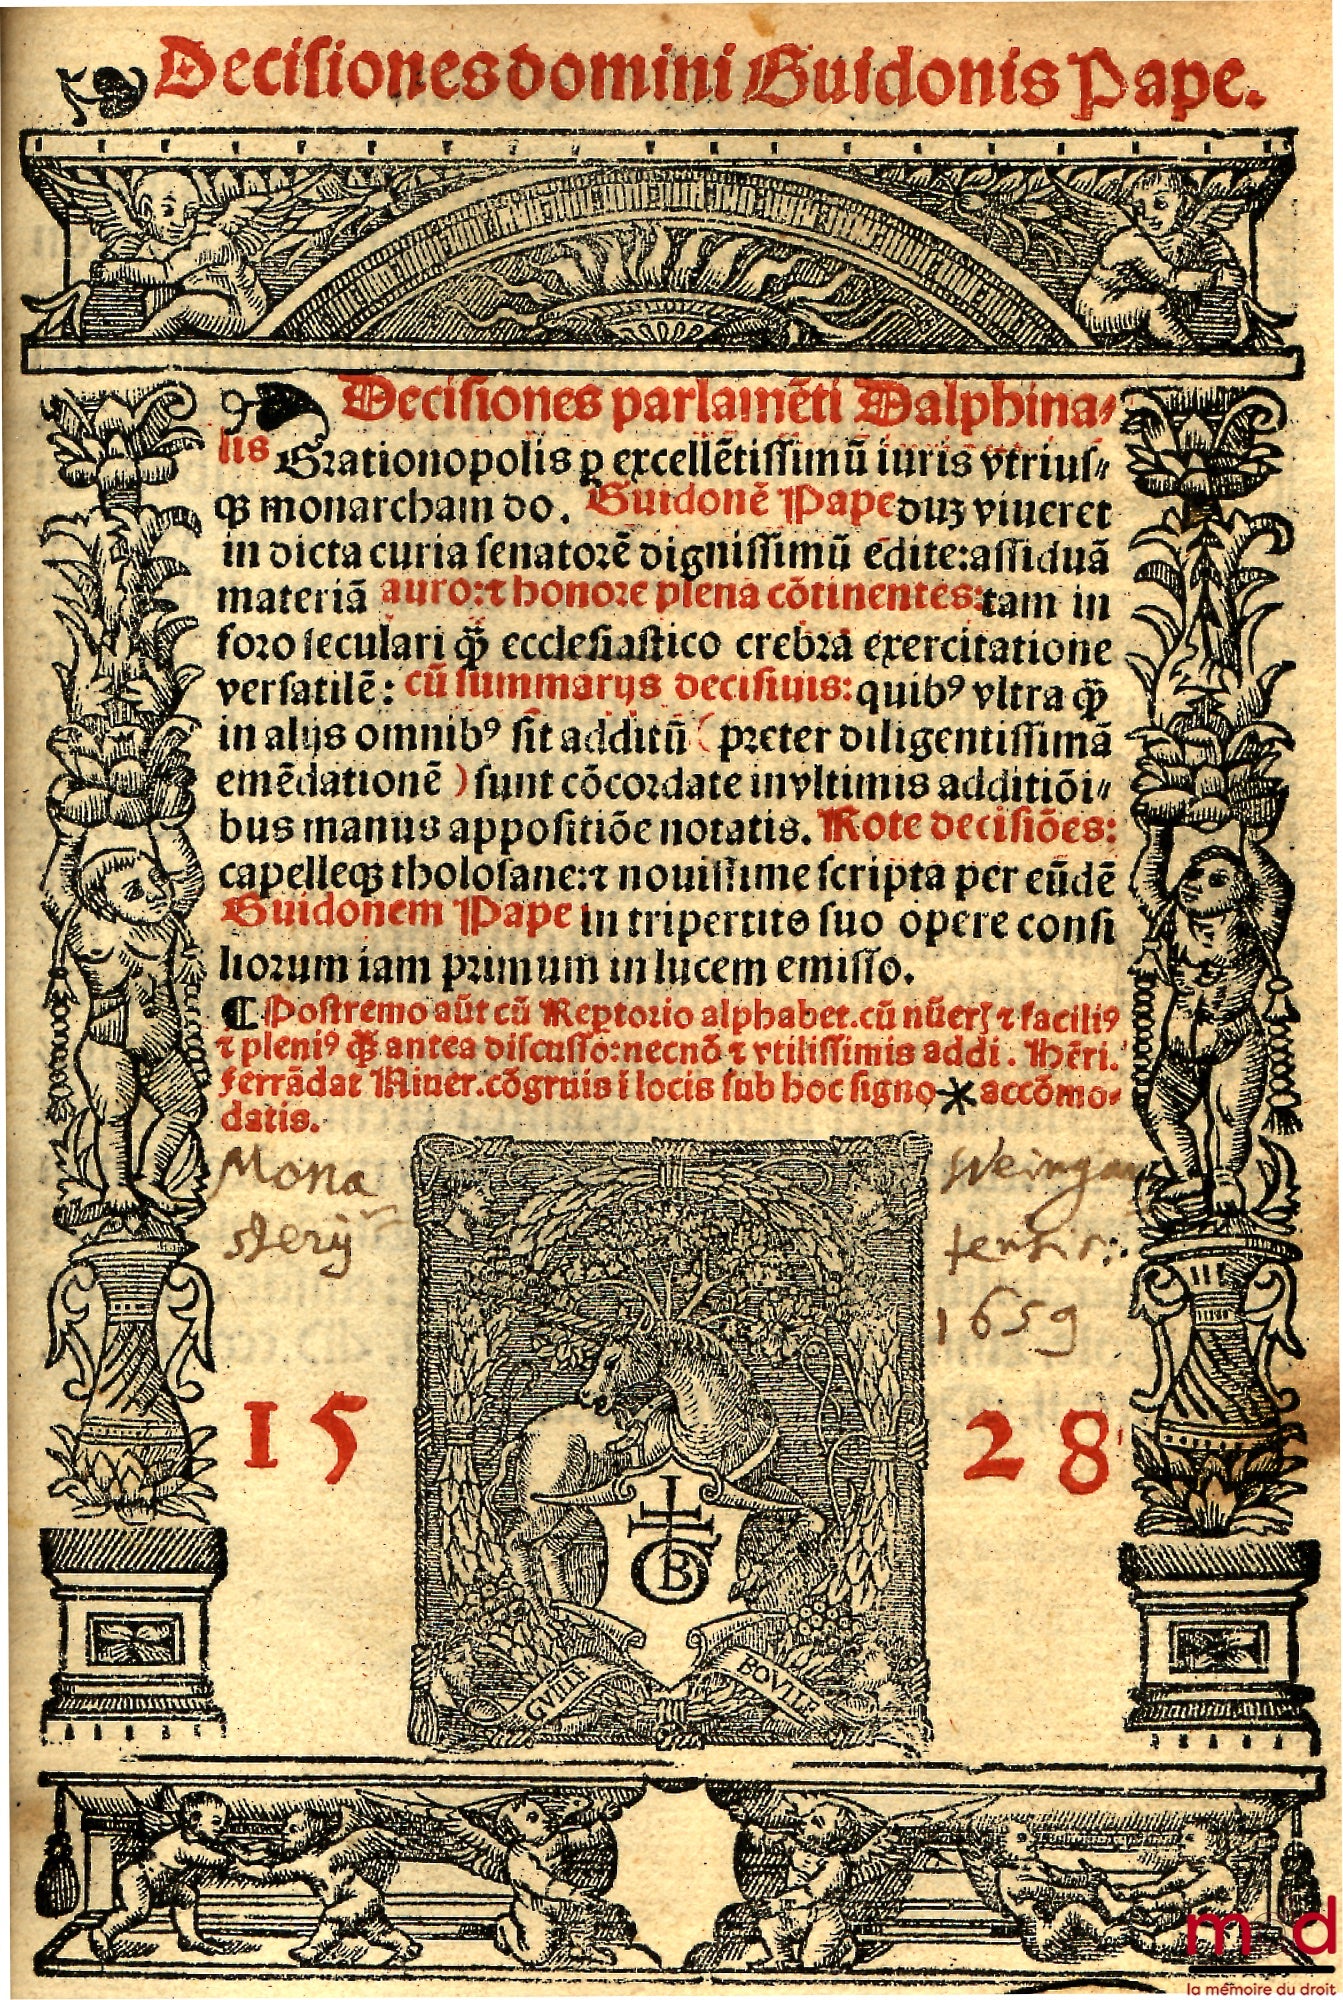 Decisiones domini Guidonis Pape.
Decisiones parlamēti Dalphina⸗
lis Grationopolis ꝑ excellētissimū iuris vtrius⸗
qꝫ monarcham do. Guidonē Pape duꝫ viueret
in dicta curia senatorē dignissimū edite: assiduā
materiā auro: ⁊ honore plena cōtinentes: tam in
foro seculari q̄ꝫ ecclesiastico crebra exercitatione
versatilē: cū summarijs decisiuis: quibꝰ vltra q̄ꝫ
in alijs omnibꝰ sit additū (preter diligentissimā
emēdationē) sunt cōcordate in vltimis additiōi⸗
bus manus appositiōe notatis. Rote decisiōes:
capelleqꝫ tholosane: ⁊ nouissime scripta per eūdē
Guidonem Pape in tripertito suo opere consi
liorum iam primum in lucem emisso.
¶ Postremo aūt cū Reꝑtorio alphabet. cū nūerꝭ ⁊ faciliꝰ
⁊ pleniꝰ q̄ꝫ antea discusso: necnō ⁊ vtilissimis addi. Hēri.
Ferrādat Niuer. cōgruis ī locis sub hoc signo * accōmo⸗
datis.
Mona
sterij
Weingar
tensis:
1659
15 28
I
G B
GVILLE BOVLLE
m d
la mémoire du droit